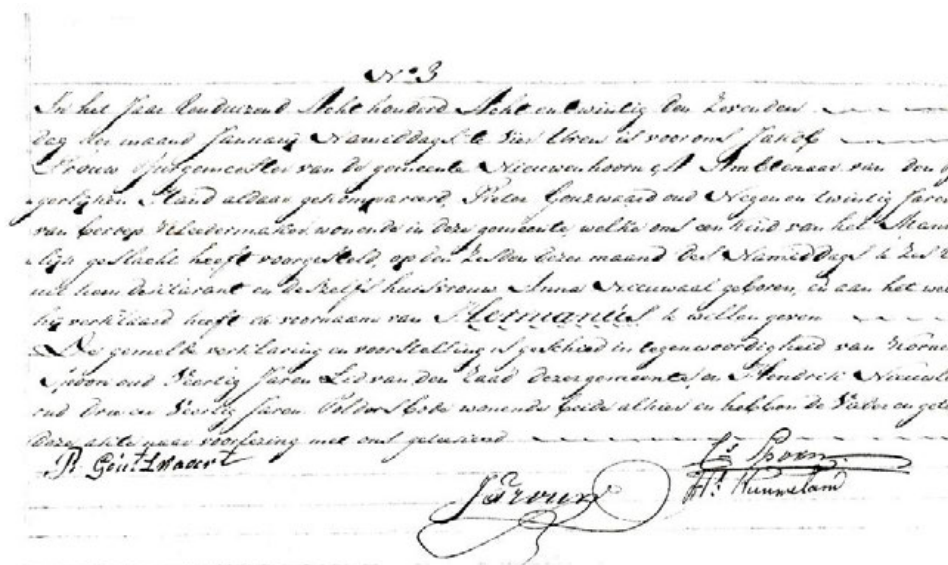 No 3
In het Jaar Eenduizend Acht honderd Acht en twintig den Zevenden
dag der maand Januarij Namiddags te Vier Uren is voor ons Jakob
Trouw Burgemeester van de gemeente Nieuwenhoorn Ambtenaar van den
gerlijken Stand aldaar gekompareerd, Pieter Gouzwaard oud Negen en twintig Jaren
van beroep Kledermaker, wonende in deze gemeente, welke ons een kind van het Mann
lijk geslacht heeft voorgesteld, op den Zesden dezer maand des Namiddags te Zes
uit hem declarant en deszelfs huisvrouw Anna Nieuwaal geboren, en aan het wel
hij verklaard heeft de voornaam van Hermanus te willen geven
De gemelde verklaring en voorstelling is geschied in tegenwoordigheid van
Spoon oud Veertig Jaren Lid van den Raad dezer gemeente, en Hendrik
oud Drie en Veertig Jaren Polders Bode wonende beide alhier en hebben de Vader en
deze akte naar voorlezing met ons geteekend
P. Gouzwaart
Cs Spoon
JTrouw
Hk